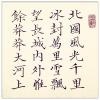 北國風光千里
冰封萬里雪飄
望長城內外惟
餘莽莽大河上